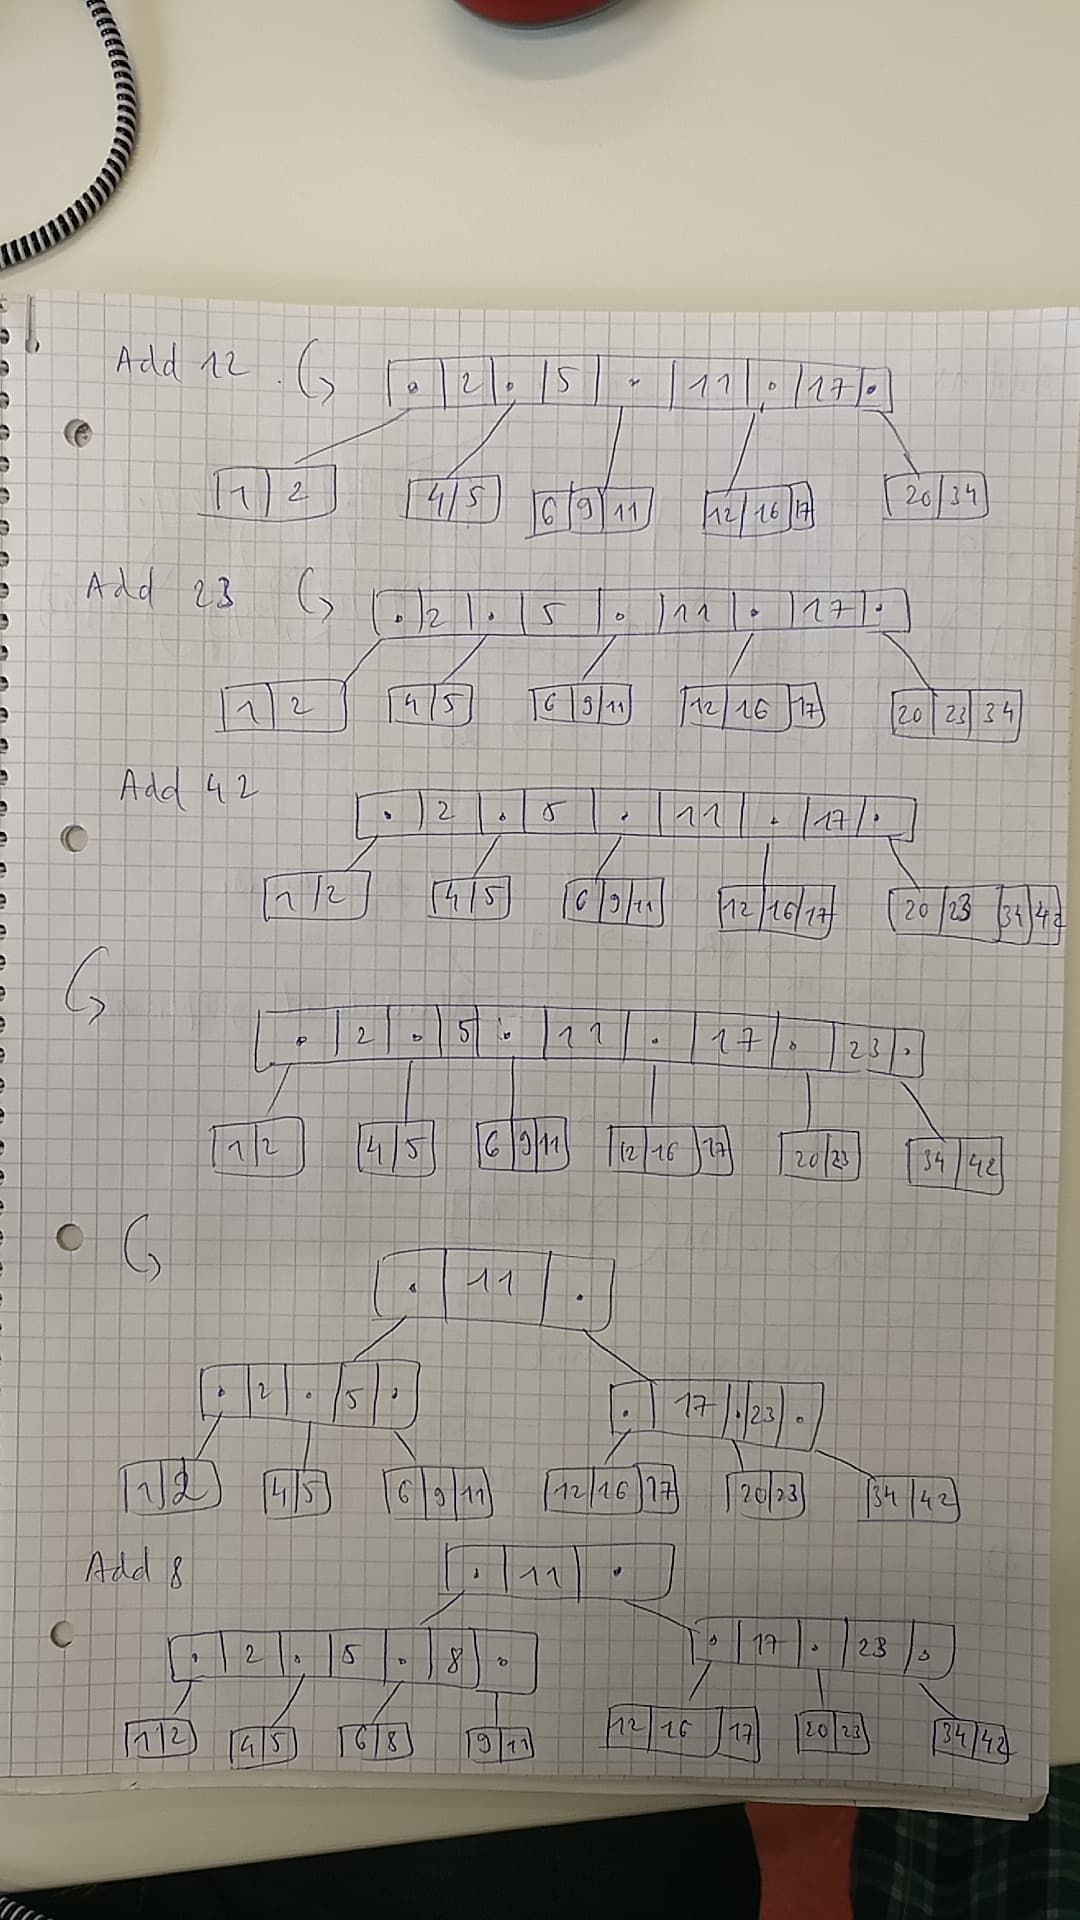 Add 12 . 2 . 5 . 11 . 17 .
1 2 4 5 6 9 11 12 16 17 20 34
Add 23 . 2 . 5 . 11 . 17 .
1 2 4 5 6 9 11 12 16 17 20 23 34
Add 42 . 2 . 5 . 11 . 17 .
1 2 4 5 6 9 11 12 16 17 20 23 34 42
. 2 . 5 . 11 . 17 . 23 .
1 2 4 5 6 9 11 12 16 17 20 23 34 42
. 11 .
. 2 . 5 . . 17 . 23 .
1 2 4 5 6 9 11 12 16 17 20 23 34 42
Add 8 . 11 .
. 2 . 5 . 8 . . 17 . 23 .
1 2 4 5 6 8 9 11 12 16 17 20 23 34 42